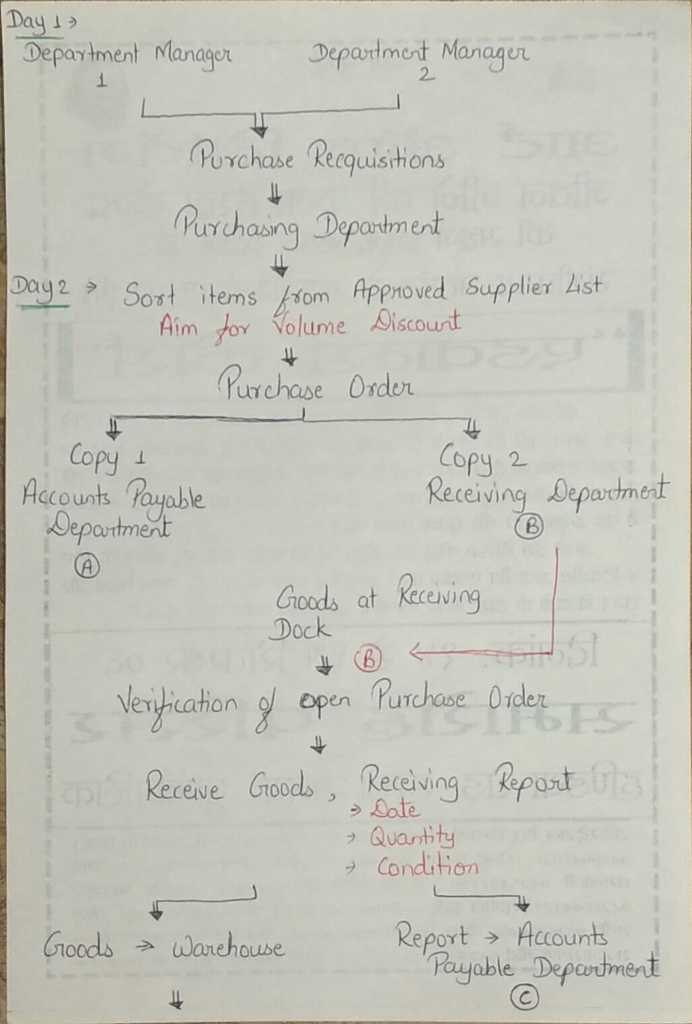 Day 1 →
Department Manager 1
Department Manager 2
Purchase Recquisitions
Purchasing Department
Day 2 → Sort items from Approved Supplier List
Aim for Volume Discount
Purchase Order
Copy 1
Accounts Payable
Department
A
Copy 2
Receiving Department
B
Goods at Receiving
Dock
B
Verification of open Purchase Order
Receive Goods, Receiving Report
→ Date
→ Quantity
→ Condition
Goods → Warehouse
Report → Accounts
Payable Department
C